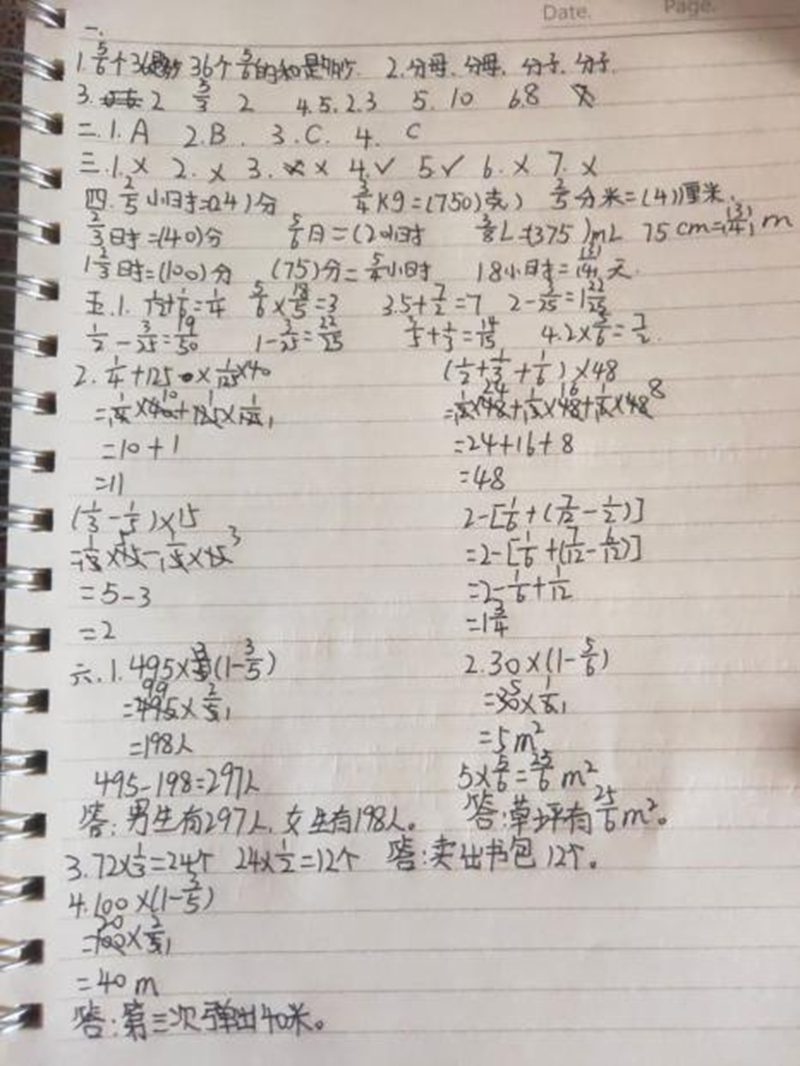 Date. Page.
一.
1. 5/6+36 36个5/6的和是多少. 2. 分母、分母、分子、分子.
3. 2 5/3 2 4. 5. 2. 3 5. 10 6. 8
二. 1. A 2. B. 3. C. 4. C
三. 1. × 2. × 3. × 4. ✓ 5. ✓ 6. × 7. ×
四. 2/5小时=(24)分 3/4kg=(750)克) 2/5分米=(4)厘米.
2/3时=(40)分 5/6日=(20)时 3/8L=(375)mL 75cm=(3/4)m
1 2/3时=(100)分 (75)分=5/4小时 18小时=(3/4)天.
五. 1. 1/12+1/6=1/4 5/6×18/5=3 3.5+7/2=7 2-3/25=1 22/25
1/2-3/25=19/50 1-3/25=22/25 3/5+1/3=14/15 4.2×5/6=7/2.
2. 1/4+125×1/125×40 (1/2+1/3+1/6)×48
=1/4×40+125×1/125 =1/2×48+1/3×48+1/6×48
=10+1 =24+16+8
=11 =48
(1/3-1/5)×15 2-[1/6+(7/12-1/2)]
=1/3×15-1/5×15 =2-[1/6+(7/12-6/12)]
=5-3 =2-1/6+1/12
=2 =1 3/4
六. 1. 495×(1-3/5) 2. 30×(1-5/6)
=495×2/5 =30×1/6
=198人 =5m²
495-198=297人 5×5/6=25/6m²
答:男生有297人,女生有198人。 答:草坪有25/6m²。
3. 72×1/3=24个 24×1/2=12个 答:卖出书包12个。
4. 100×(1-3/5)
=100×2/5
=40m
答:第三次弹出40米。